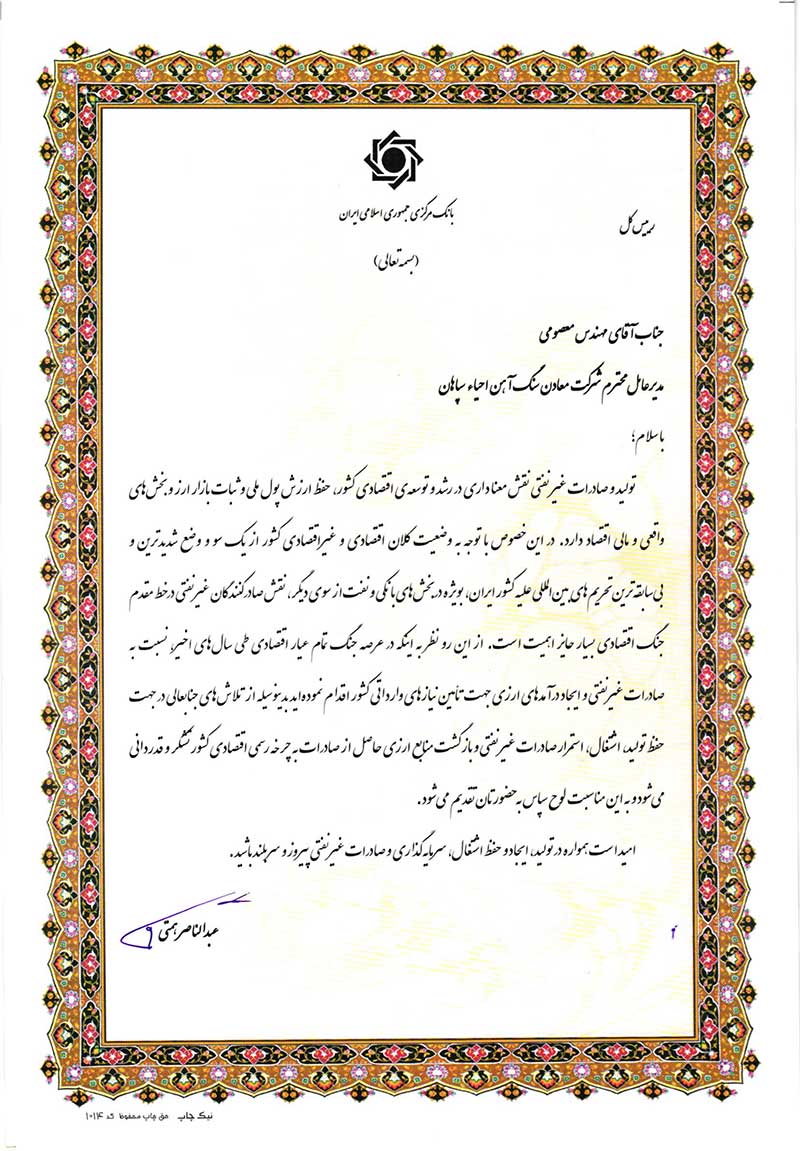 بانک مرکزی جمهوری اسلامی ایران
رییس کل
(بسمه تعالی)
جناب آقای مهندس معصومی
مدیرعامل محترم شرکت معادن سنگ آهن احیاء سپاهان
با سلام؛
تولید و صادرات غیرنفتی نقش معناداری در رشد و توسعه‌ی اقتصادی کشور، حفظ ارزش پول ملی و ثبات بازار ارز و بخش‌های
واقعی و مالی اقتصاد دارد. در این خصوص با توجه به وضعیت کلان اقتصادی و غیراقتصادی کشور از یک سو و وضع شدیدترین و
بی سابقه ترین تحریم های بین المللی علیه کشور ایران، بویژه در بخش‌های بانکی و نفت از سوی دیگر، نقش صادرکنندگان غیرنفتی در خط مقدم
جنگ اقتصادی بسیار حایز اهمیت است. از این رو نظر به اینکه در عرصه جنگ تمام عیار اقتصادی طی سال‌های اخیر، نسبت به
صادرات غیرنفتی و ایجاد درآمدهای ارزی جهت تأمین نیازهای وارداتی کشور اقدام نموده‌اید بدینوسیله از تلاش‌های جنابعالی در جهت
حفظ تولید، اشتغال، استمرار صادرات غیرنفتی و بازگشت منابع ارزی حاصل از صادرات به چرخه رسمی اقتصادی کشور تشکر و قدردانی
می‌شود و به این مناسبت لوح سپاس به حضورتان تقدیم می‌شود.
امید است همواره در تولید، ایجاد و حفظ اشتغال، سرمایه گذاری و صادرات غیرنفتی پیروز و سربلند باشید.
عبدالناصر همتی
نیک چاپ حق چاپ محفوظ کد ۱۰۱۴